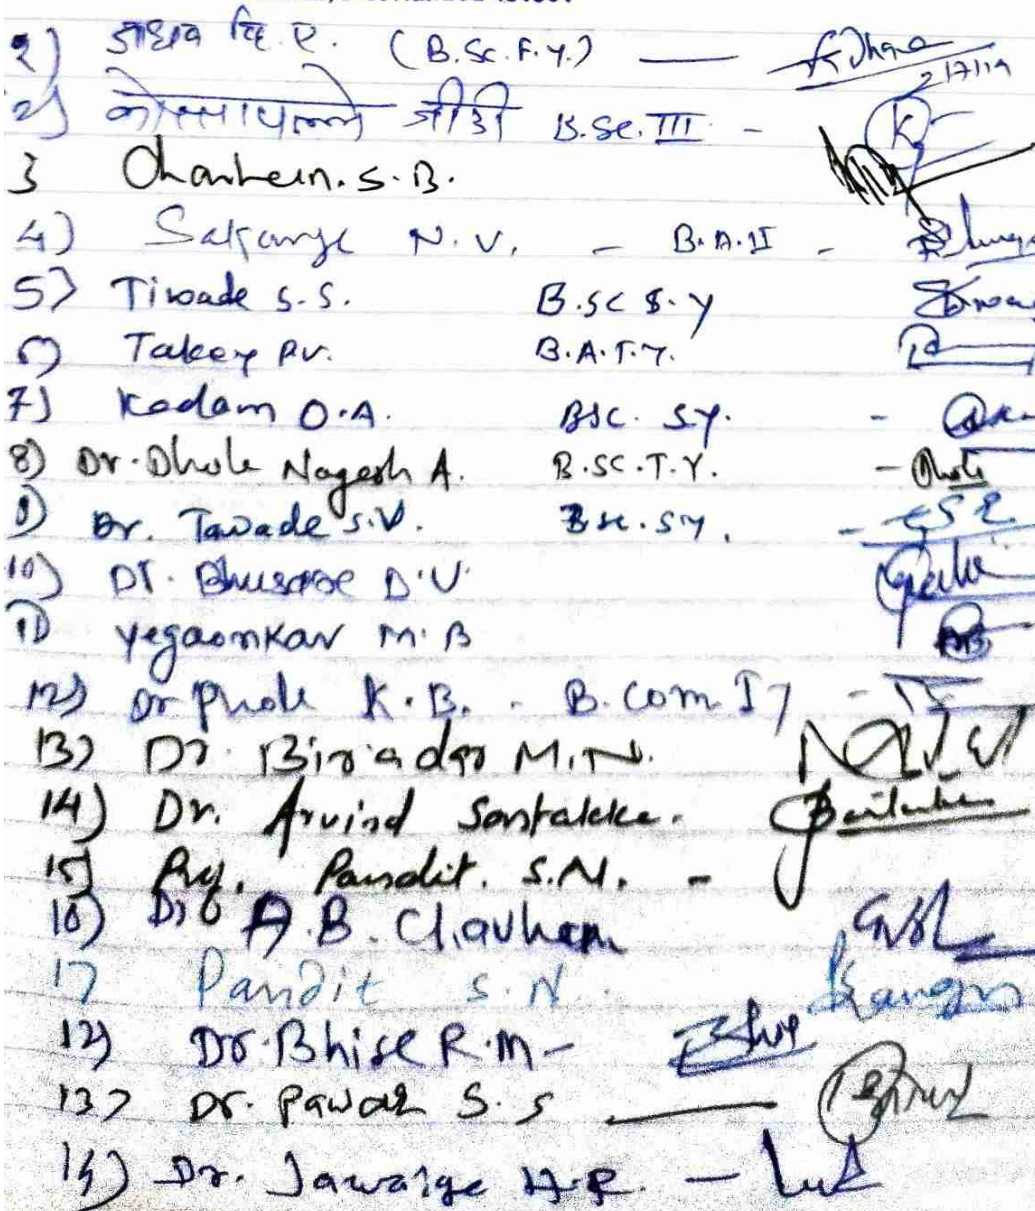 १) जाधव वि. ए. (B.Sc. F.Y.) — 2/7/19
2) जीडी B.Sc. III -
3 Chauhan. S.B.
4) N.V. - B.A. II -
5) Tiwade S.S. B.SC S.Y
6) Takey P.V. B.A.T.Y.
7) Kadam O.A. BSC. SY. -
8) Dr. Dhole Nagesh A. B.SC.T.Y. - Dhole
9) Dr. Tawade S.V. Bsc. SY. -
10) Dr. Bhusare D.V.
11) Yegaonkar M.B
12) Dr Phole K.B. - B.Com I Y -
13) Dr. Biradar M.N.
14) Dr. Arvind Sontakke.
15) Pandit. S.N. -
16) Dr A.B. Chavhan
17 Pandit S.N.
12) Dr. Bhise R.M -
13) Dr. Pawar S.S —
14) Dr. Jawalge H.R. -